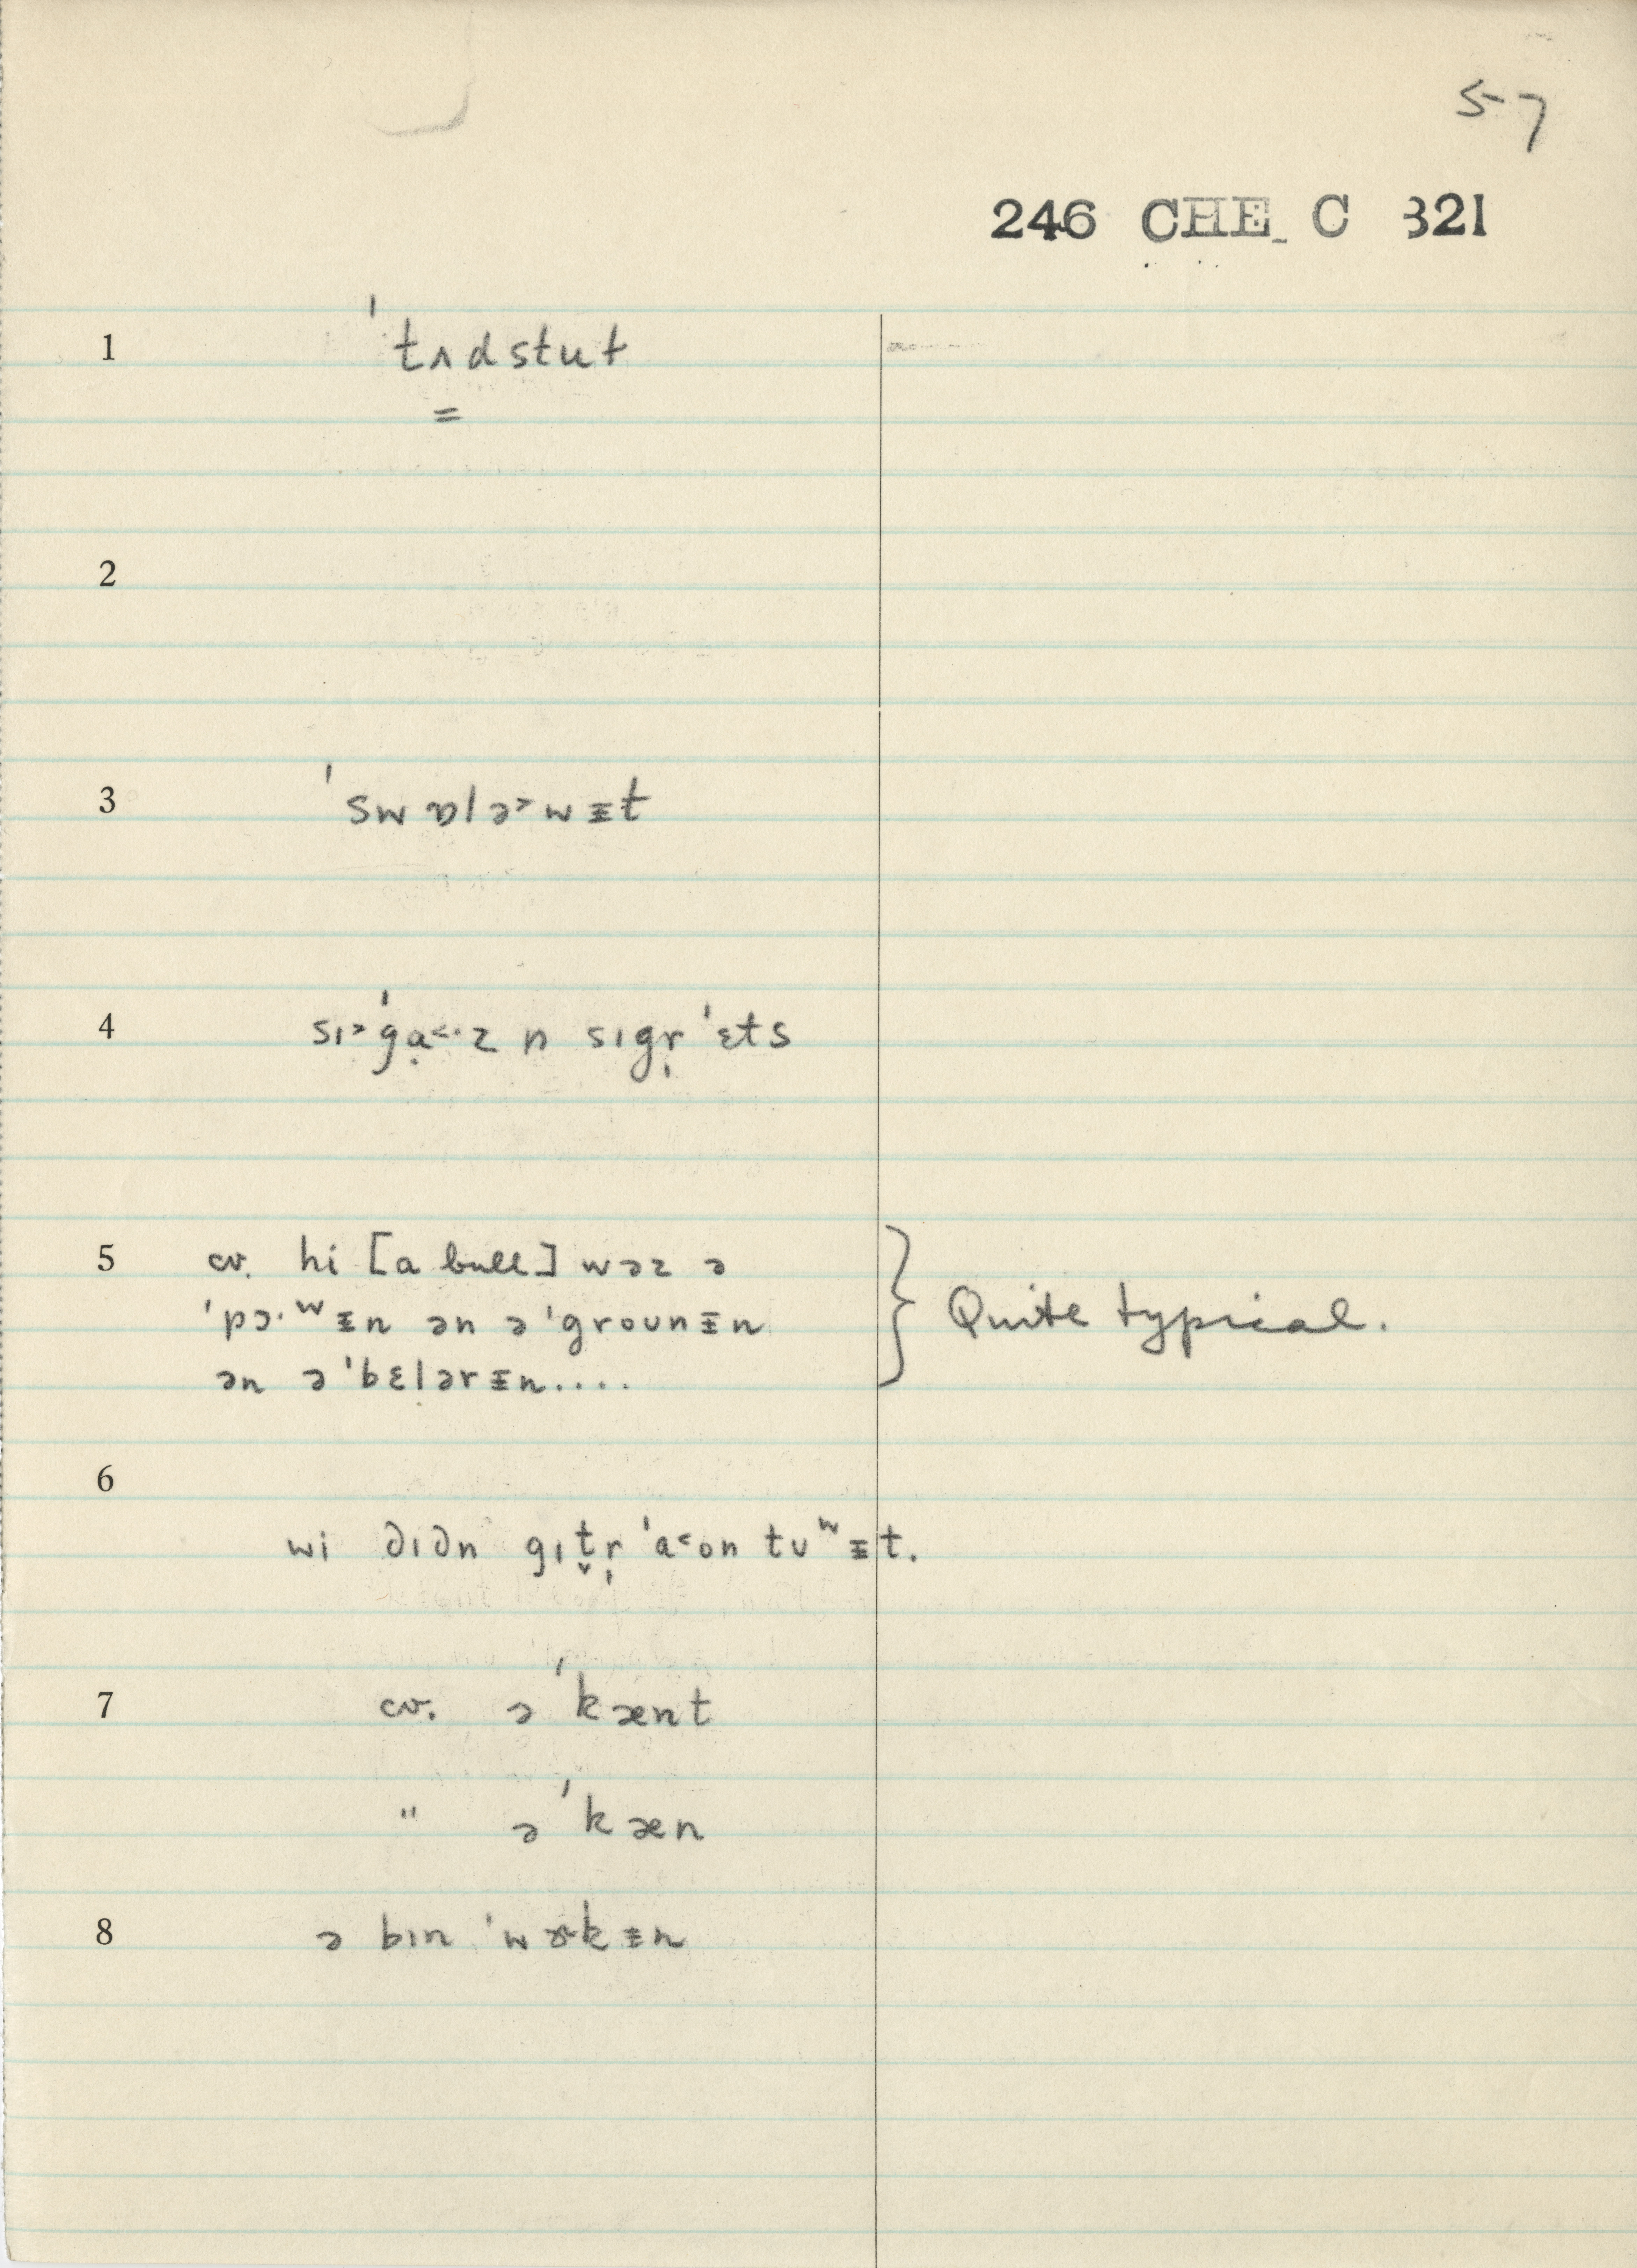 57
246 CHE C 321
1 ˈtʌdstut
=
2
3 ˈswɒlə˃wᵻt
4 sɪ˃ˈgạ˂·z n sɪgr̩ˈɛts
5 cv. hi [a bull] wəz ə
ˈpɔ·ʷᵻn ən ə ˈgrounᵻn
ən ə ˈbɛlərᵻn....
} Quite typical.
6
wi ∂ɪ∂n gɪt̬r̩ ˈa˂on tʊʷᵻt.
7 cv. ə ˈkænt
" ə ˈkæn
8 ə bɪn ˈwɚkᵻn